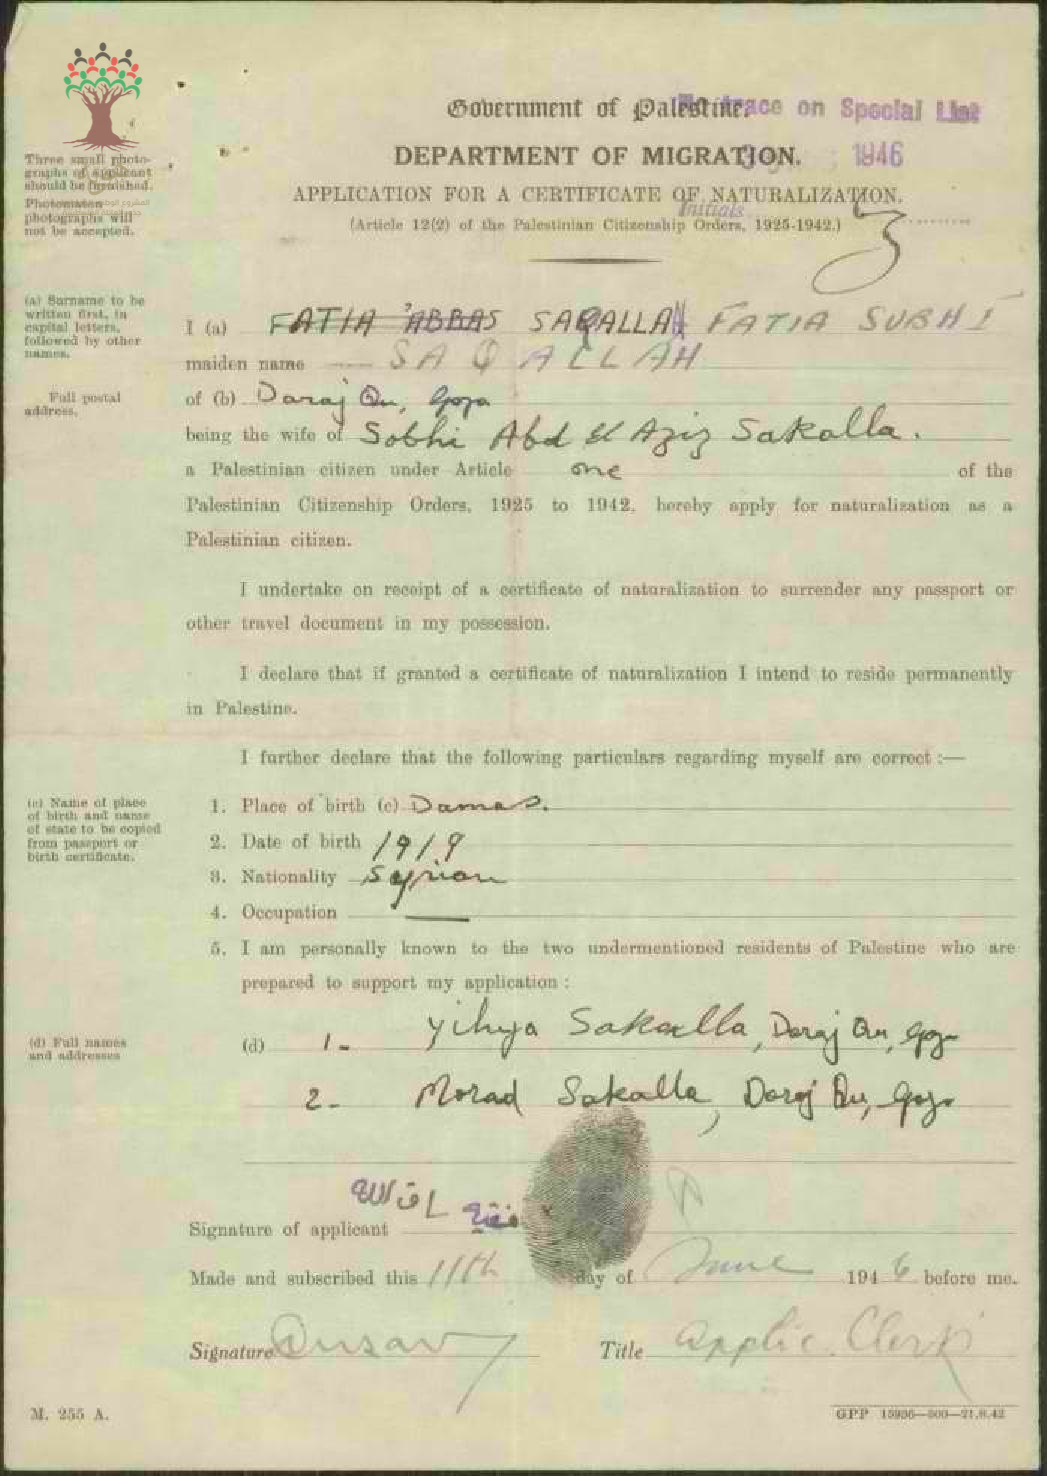 Government of Palestine.
No trace on Special List
DEPARTMENT OF MIGRATION.
1946
APPLICATION FOR A CERTIFICATE OF NATURALIZATION.
Initials
(Article 12(2) of the Palestinian Citizenship Orders, 1925-1942.)
Three small photo-
graphs of applicant
should be furnished.
Photomaton
photographs will
not be accepted.
(a) Surname to be
written first, in
capital letters,
followed by other
names.
I (a) FATIA 'ABBAS SAQALLAH FATIA SUBHI
maiden name SAQALLAH
Full postal
address.
of (b) Daraj Qu, Gaza
being the wife of Sobhi Abd El Aziz Sakalla.
a Palestinian citizen under Article one of the
Palestinian Citizenship Orders, 1925 to 1942, hereby apply for naturalization as a
Palestinian citizen.
I undertake on receipt of a certificate of naturalization to surrender any passport or
other travel document in my possession.
I declare that if granted a certificate of naturalization I intend to reside permanently
in Palestine.
I further declare that the following particulars regarding myself are correct :—
(c) Name of place
of birth and name
of state to be copied
from passport or
birth certificate.
1. Place of birth (c) Damas.
2. Date of birth 1919
3. Nationality Syrian
4. Occupation —
5. I am personally known to the two undermentioned residents of Palestine who are
prepared to support my application :
(d) Full names
and addresses
(d) 1- Yihya Sakalla, Daraj Qu, Gaza
2- Morad Sakalla, Daraj Qu, Gaza
ساق الله
Signature of applicant
Made and subscribed this 11th day of June 1946 before me.
Signature
Title Applic. Clerk
M. 255 A.
GPP 15936—500—21.8.42